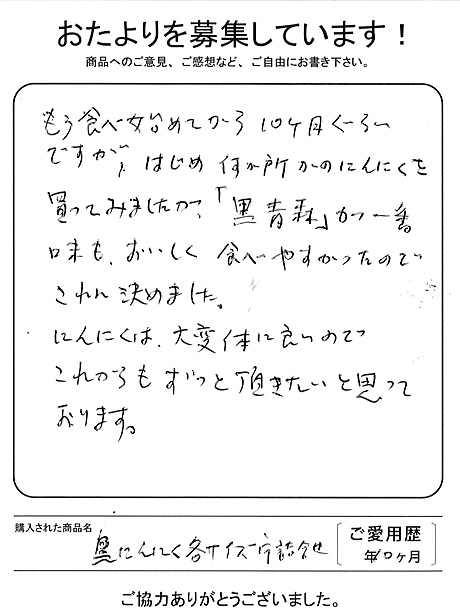 おたよりを募集しています！
商品へのご意見、ご感想など、ご自由にお書き下さい。
もう食べ始めてから 10ケ月ぐらい
ですが、はじめ 何か所かのにんにくを
買ってみましたが、「黒青森」が一番
味も、おいしく 食べやすかったので
これに決めました。
にんにくは、大変体に良いので
これからも ずっと頂きたいと思って
おります。
購入された商品名
黒にんにく各サイズ 詰合せ
ご愛用歴
年 ヶ月
ご協力ありがとうございました。